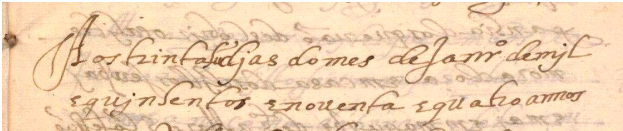 Aos trinta dias do mes de Janrº de mjl
e qujnhentos e noventa e quatro annos